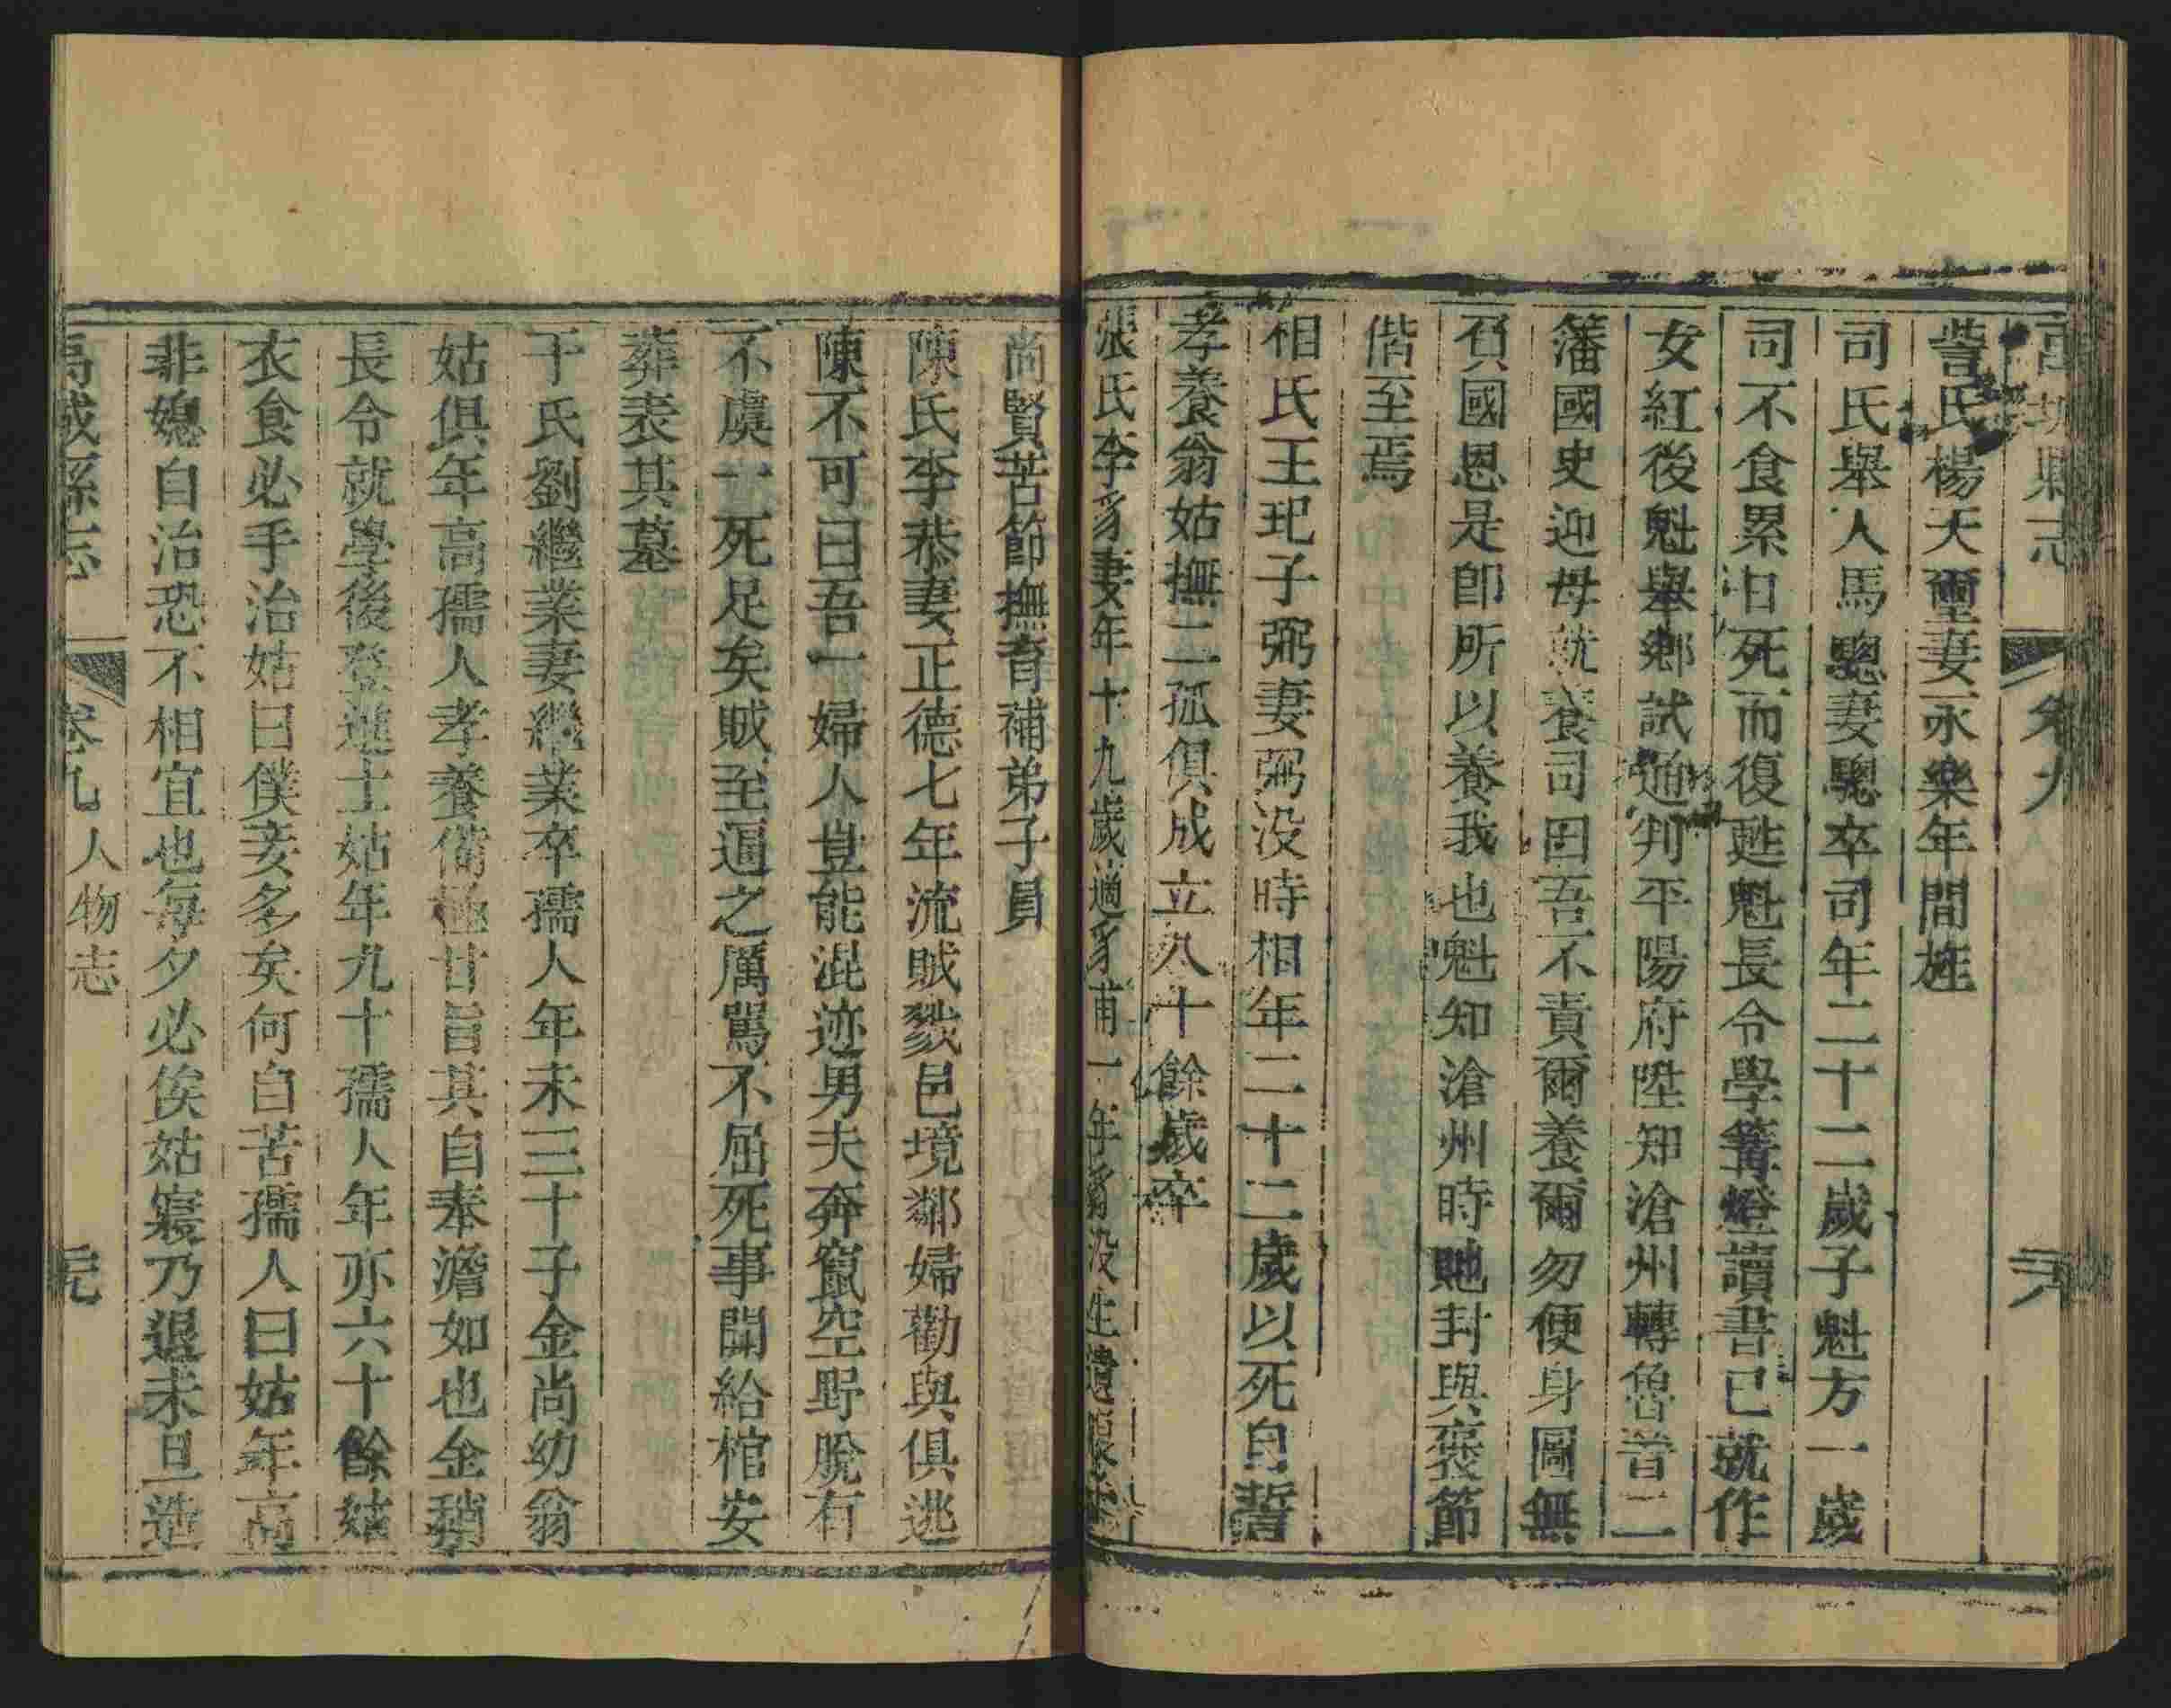 縣志　卷九　二八
訾氏楊天璽妻永樂年間旌
司氏舉人馬驄妻驄卒司年二十二歲子魁方一歲
司不食累日死而復甦魁長令學篝燈讀書已就作
女紅後魁舉鄉試通判平陽府陞知滄州轉魯晉二
籓國史迎母就養司曰吾不責爾養爾勿便身圖無
負國恩是卽所以養我也魁知滄州時貤封與褒節
偕至焉
相氏王玘子弼妻弼没時相年二十二歲以死自誓
孝養翁姑撫二孤俱成立八十餘歲卒
張氏李豸妻年十九歲適豸甫一年豸没生遺腹
尚賢苦節撫育補弟子員
陳氏李恭妻正德七年流賊剽邑境鄰婦勸與俱逃
陳不可曰吾一婦人豈能混迹男夫奔竄空野脫有
不虞一死足矣賊至逼之厲罵不屈死事聞給棺安
葬表其墓
于氏劉繼業妻繼業卒孺人年未三十子金尚幼翁
姑俱年高孺人孝養備極甘旨其自奉澹如也金稍
長令就學後登進士姑年九十孺人年亦六十餘姑
衣食必手治姑曰僕妾多矣何自苦孺人曰姑年高
非媳自治恐不相宜也每夕必俟姑寢乃退未旦造
禹城縣志　卷九　人物志　二九